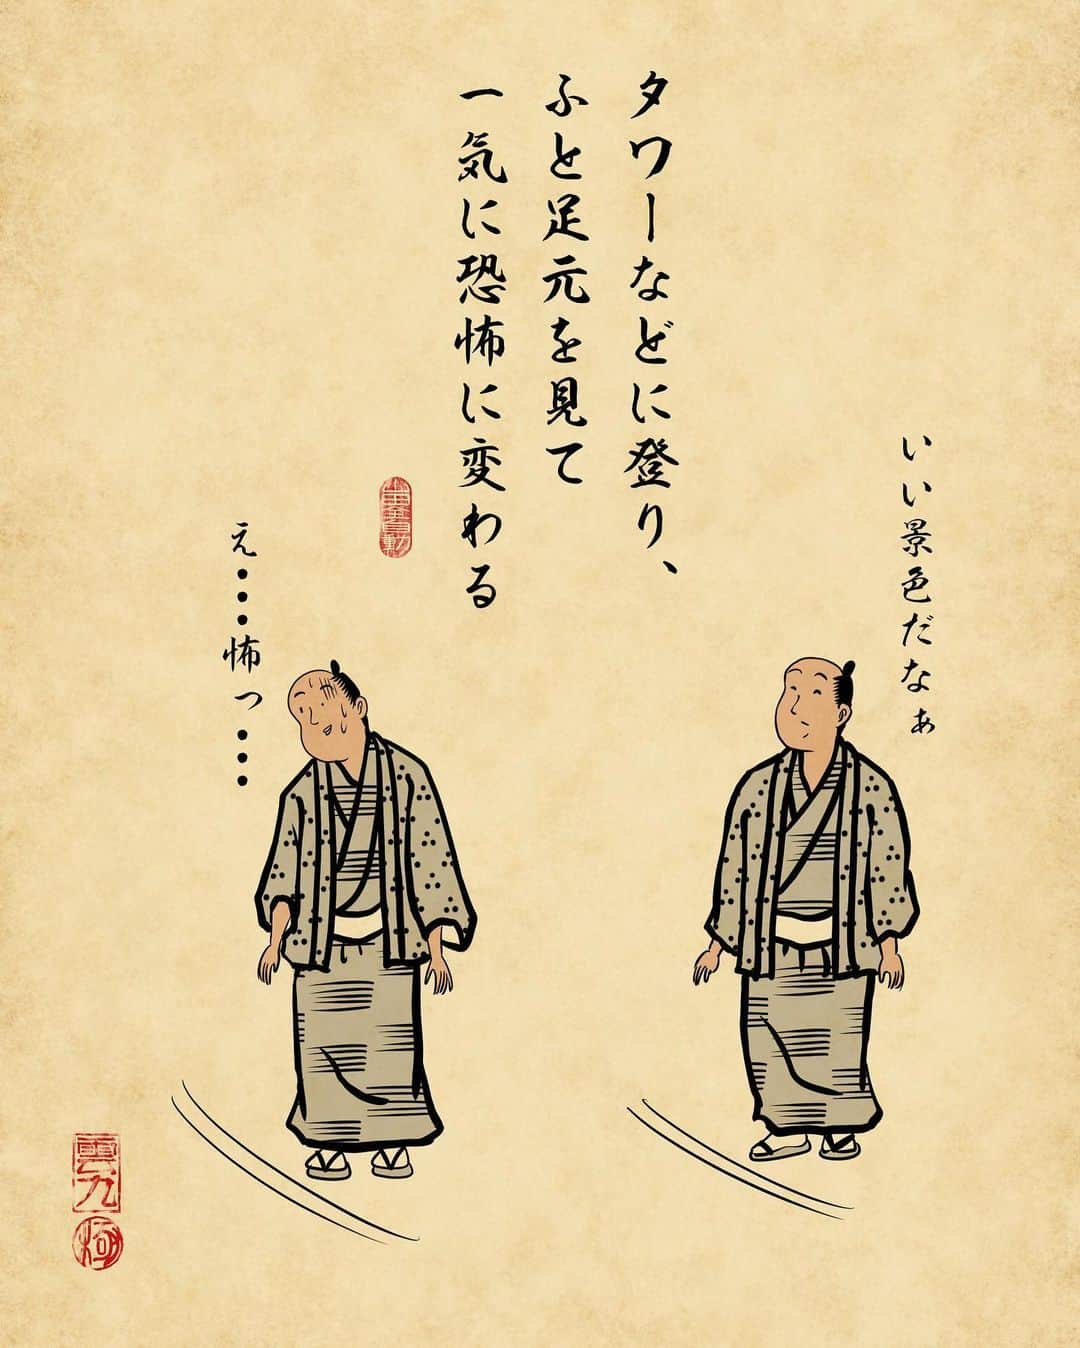 タワーなどに登り、
ふと足元を見て
一気に恐怖に変わる
いい景色だなぁ
え・・・怖っ・・・